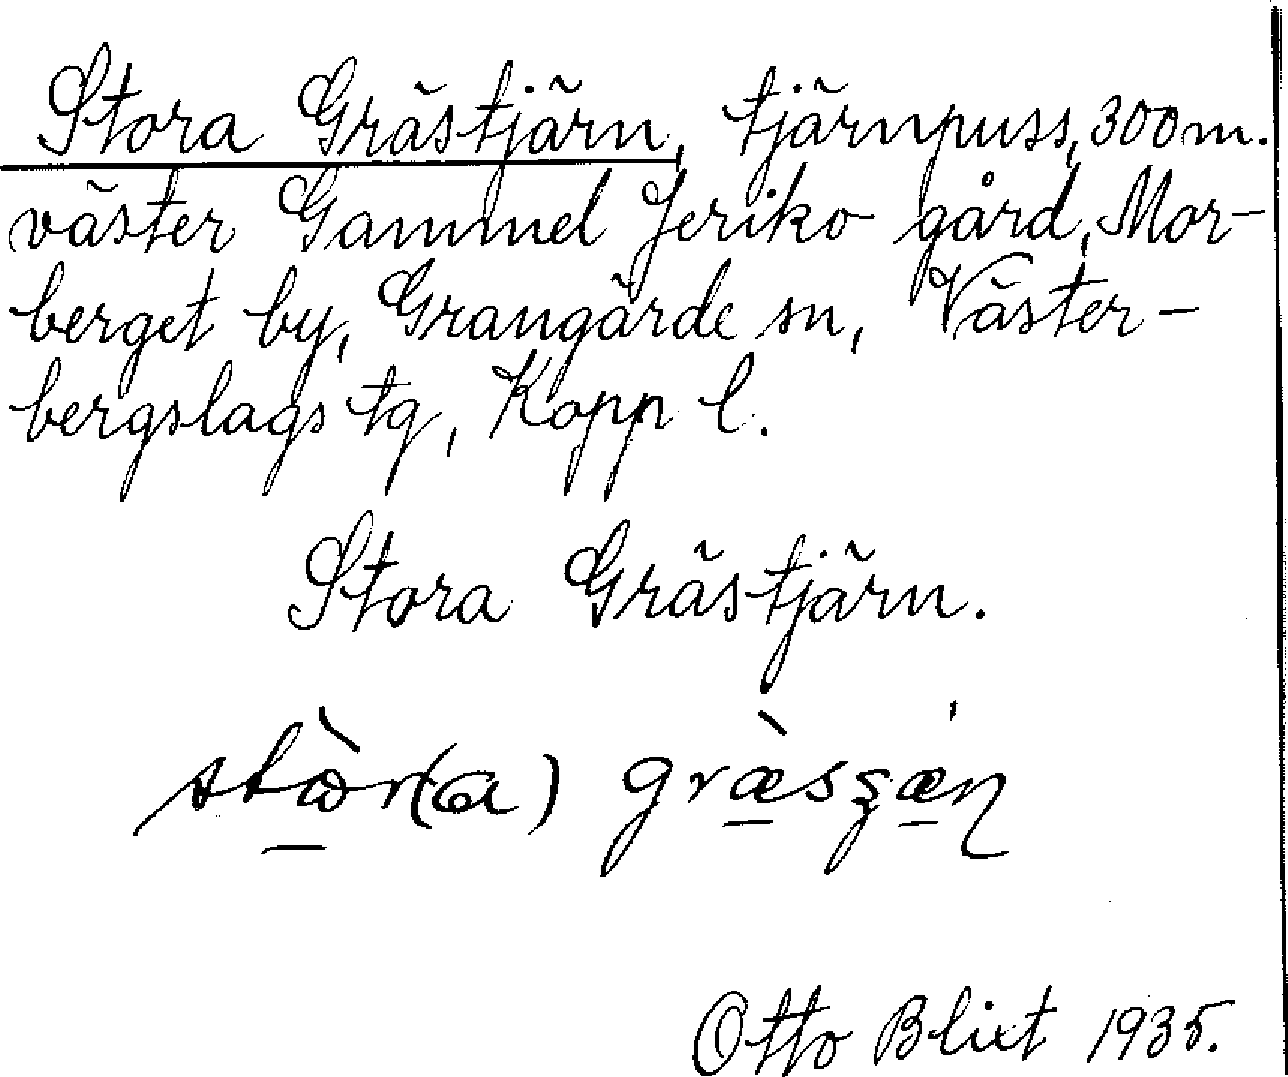 Stora Grästjärn, tjärnpuss, 300 m.
väster Gammel Jeriko gård, Mor-
berget by, Grangärde sn, Väster-
bergslags tg, Kopp l.
Stora Grästjärn.
Otto Blixt 1935.